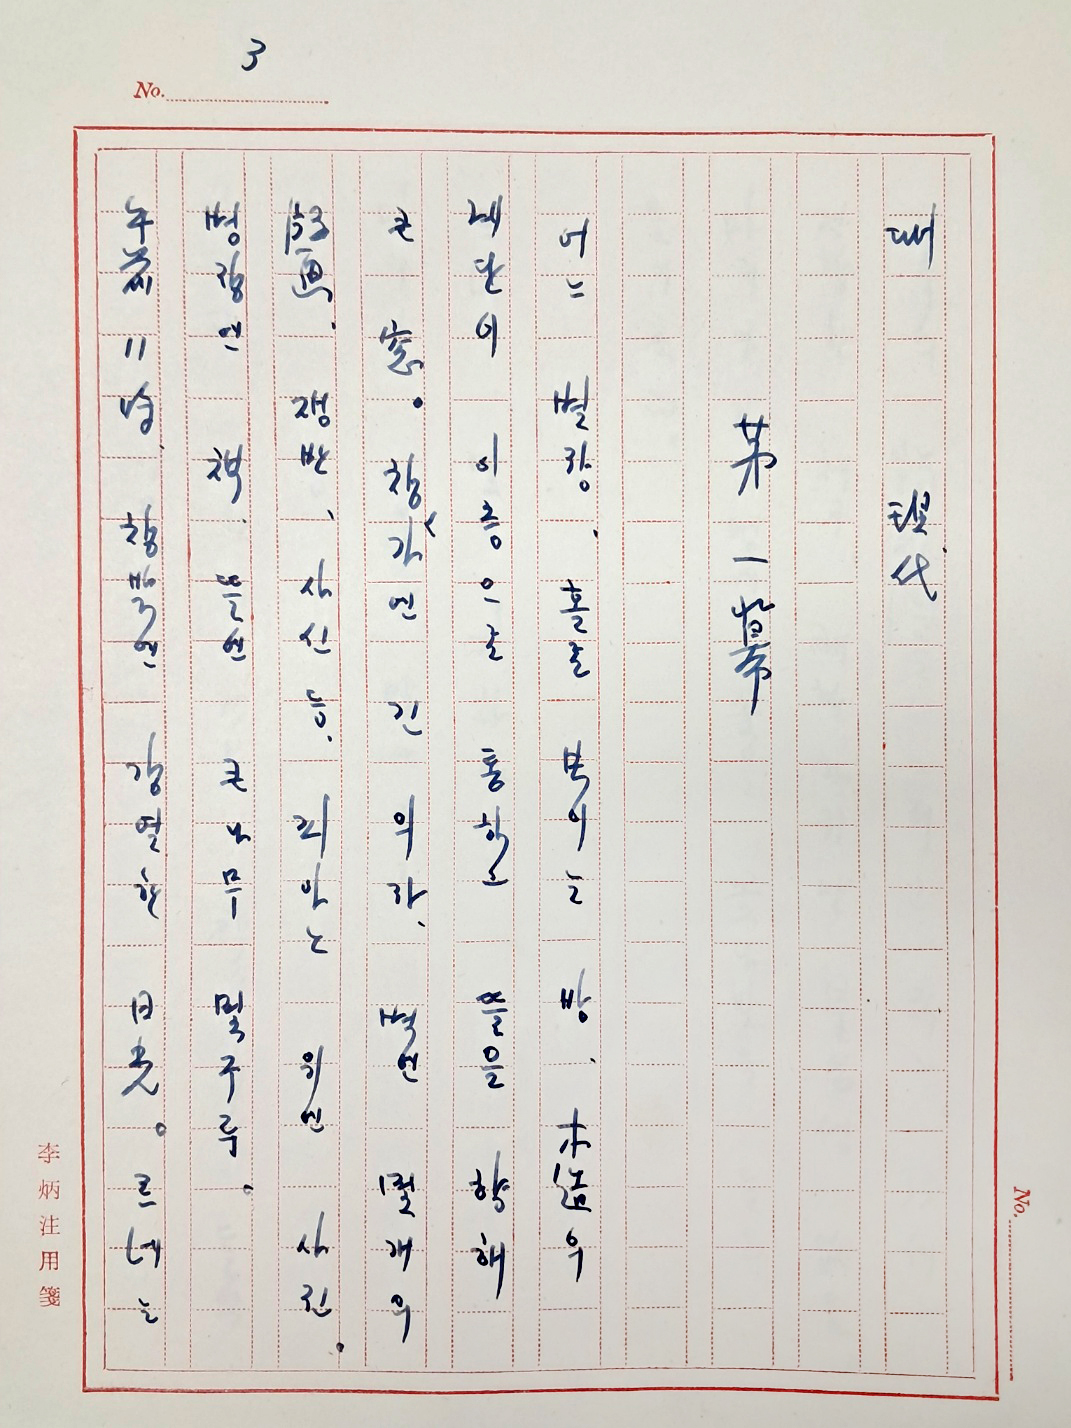 No. 3
때 現代
第一幕
어느 별장. 홀로 보이는 방. 木造의
계단이 이층으로 통하고 뜰을 향해
큰 窓。 창가엔 긴 의자、 벽엔 몇개의
版画、 쟁반、 등. 피아노 위엔 사진.
책. 뜰엔 큰 나무 몇 그루.
午前 11時、 창밖엔 강렬한 日光。 르네는
No.
李炳注用箋